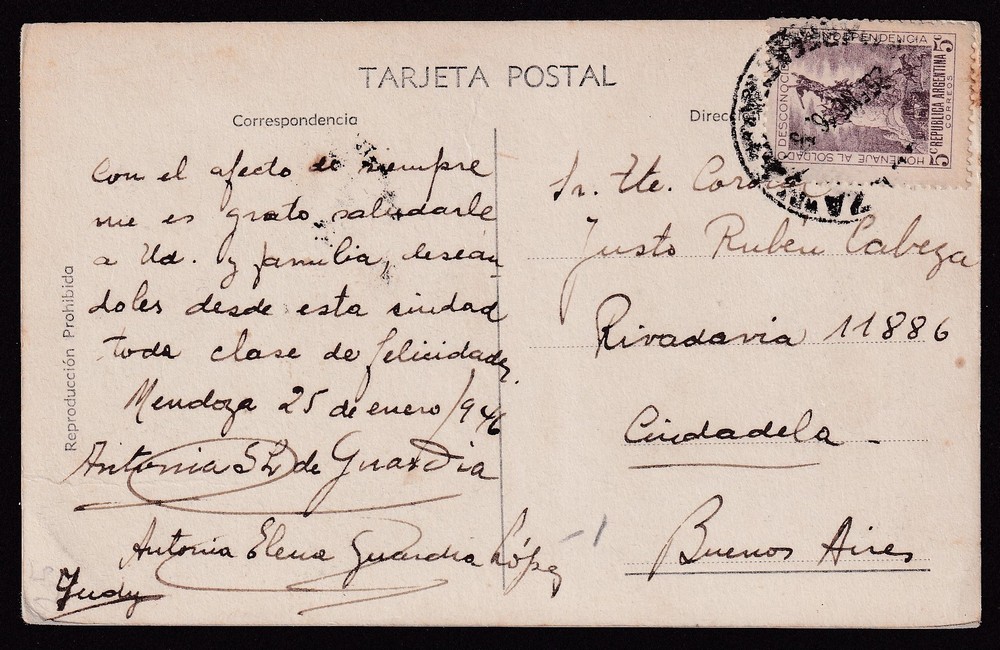 TARJETA POSTAL
Correspondencia
Con el afecto de siempre
me es grato saludarle
a Ud. y familia, desean
doles desde esta ciudad
toda clase de felicidades.
Mendoza 25 de enero/946
Antonia S L de Guardia
Antonia Elena Guardia López
Judy
Reproducción Prohibida
Direc
Sr. Tte. Coronel
Justo Ruben Cabeza
Rivadavia 11886
Ciudadela -
Buenos Aires
HOMENAJE AL SOLDADO DESCONOCIDO INDEPENDENCIA
5c REPUBLICA ARGENTINA 5c
CORREOS